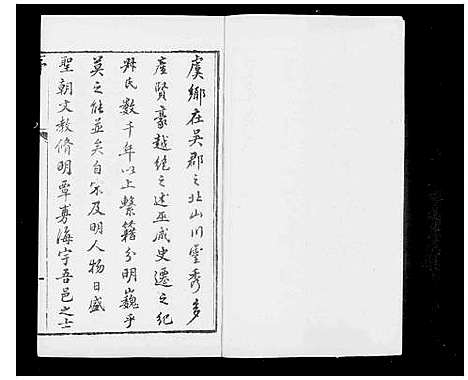 虞鄉在吳郡之北山川靈秀多
產賢豪越絕之述巫咸史遷之紀
弁氏數千年以上繫籍分明巍乎
莫之能並矣自宋及明人物日盛
聖朝文教脩明覃旉海宇吾邑之士
序
一